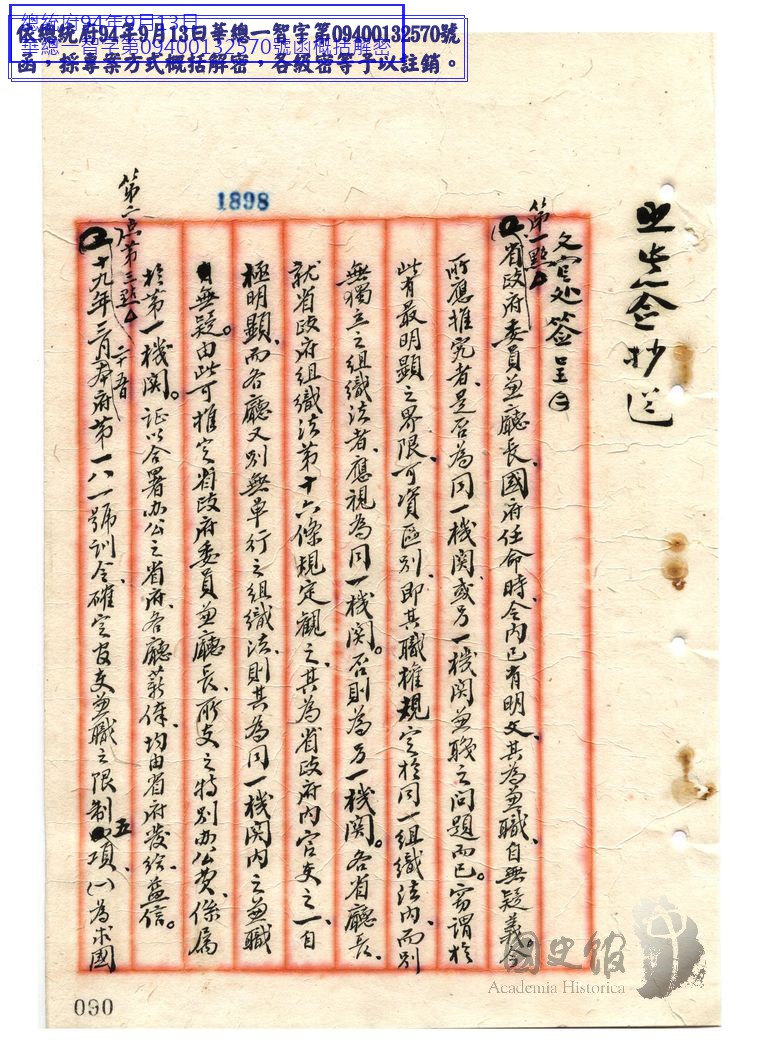 總統府94年9月13日
華總一智字第09400132570號函概括解密
依總統府94年9月13日華總一智字第09400132570號
函，採專案方式概括解密，各級密等予以註銷。
1898
抄送
文官处簽呈
第一點
省政府委員兼廳長、國府任命時、令內已有明文、其為兼職、自無疑義。今
所應推究者、是否為同一機関、或另一機関兼職之問題而已。竊謂於
此有最明顯之界限、可資區別、即其職權規定於同一組織法內、而別
無獨立之組織法者、應視為同一機関。否則為另一機関。各省廳長、
就省政府組織法第十六條規定觀之、其為省政府內官吏之一、自
極明顯、而各廳又別無單行之組織法、則其為同一機関內之兼職
無疑。由此可推定省政府委員兼廳長、所支之特別办公费、係屬
於第一機関。証以合署办公之省府、各廳薪俸、均由省府發給、益信。
第二點第三點
十九年三月二十五日本府第一八一號訓令、確定官吏兼職之限制五項、(一)為求國
090
國史館
Academia Historica